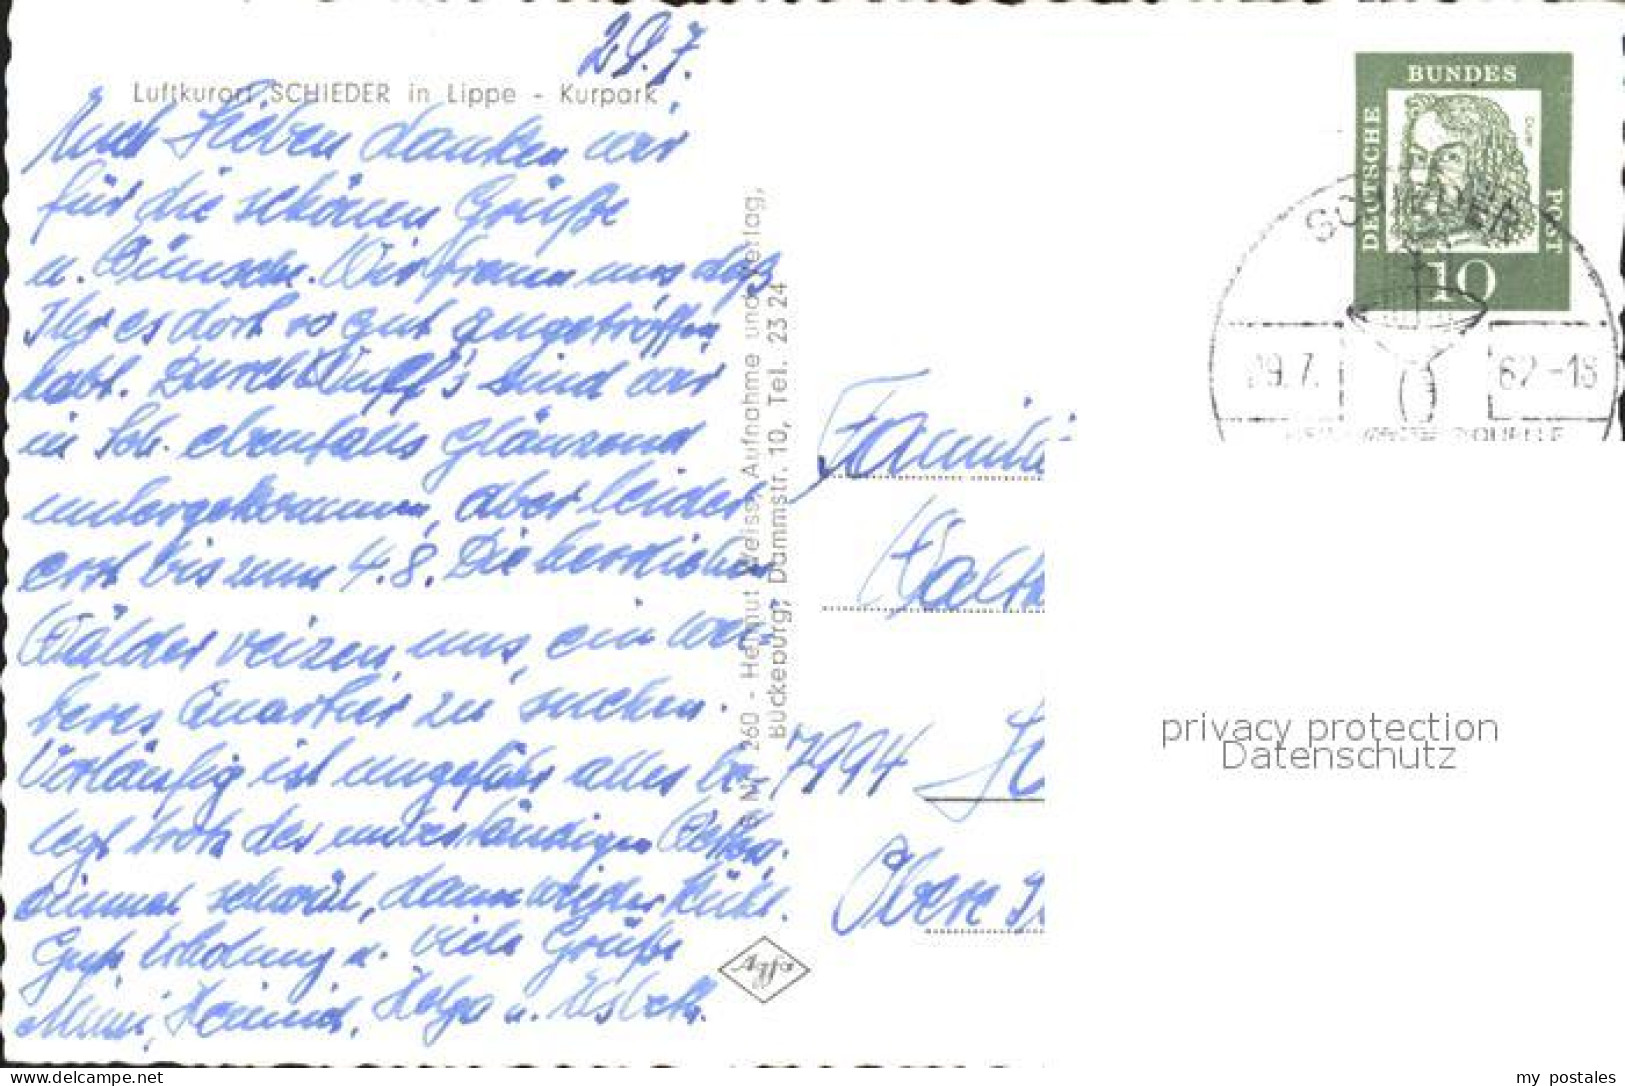 29.7.
Luftkurort SCHIEDER in Lippe - Kurpark
Euch Lieben danken wir
für die schönen Grüße
u. Wünsche. Wir freuen uns, daß
Ihr es dort so gut angetroffen
habt. Durch Wulff's sind wir
in Sch. ebenfalls glänzend
untergekommen, aber leider
erst bis zum 4.8. Die herrlichen
Wälder reizen uns, ein wei-
teres Quartier zu suchen.
Vorläufig ist ungefähr alles be-
legt trotz des unbeständigen Wetters.
einmal schwül, dann wieder kühl.
Gute Erholung u. viele Grüße
Mimi, Heinrich, Helga u. Elsbeth.
Nr. 260 - Helmut Weiss, Aufnahme und Verlag,
Bückeburg, Dammstr. 10, Tel. 23 24
Famili
Walth
7994
Obere
DEUTSCHE
BUNDES
POST
10
SCHIEDER
29.7.
62-18
QUELLE
privacy protection
Datenschutz
www.delcampe.net
my_postales